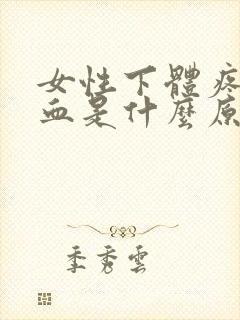 女性下體疼
血是什麼原
季秀雲